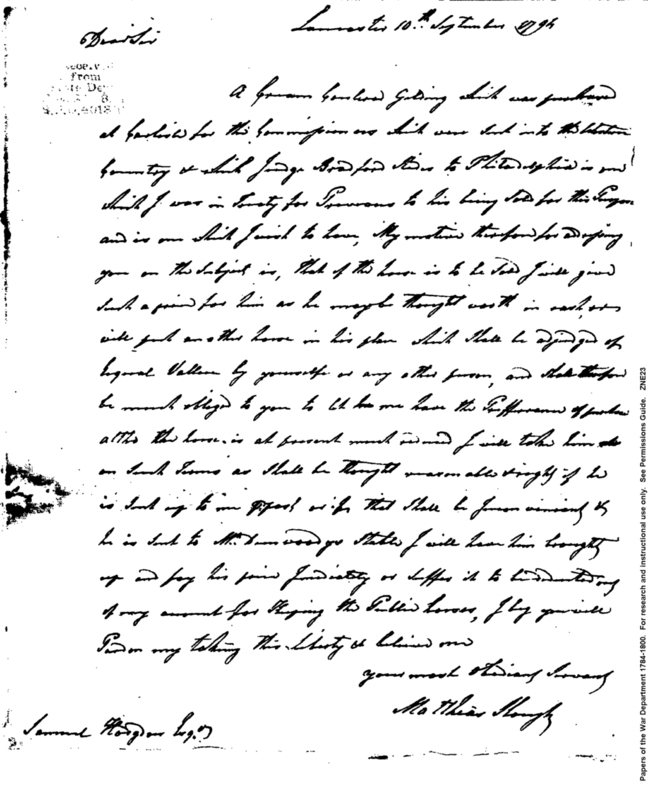 Lancaster 10th September 1794
Dear Sir
from
A Cream Coulerd Gelding which was purchased
at Carlisle for the Commissioners which were Sent into the Western
Country & which Judge Bradford Rides to Philadelphia is one
which I was in Treaty for Previous to his being Sold for this Purpos
and is one which I wish to have, My motive therefore for adressing
you on the Subject is, that if the horse is to be Sold I will give
Such a price for him as he may be thought worth in cash, or
will put another horse in his place which Shall be adjudged of
Eequal Vallue by yourself or any other person, and Shall therefore
be much obliged to you to let me have the Prefferance of purchase
altho the horse is at present much I will take him
on Such Terms as Shall be thought reasonable & right if he
is Sent up to me or if that Shall be Inconvenient &
he is Sent to Mr. Dunwoodys Stable I will have him brought
up and pay his price Imediately or Suffer it to be deducted out
of my account for Keeping the Public horses, I beg you will
Pardon my taking this Liberty & believe me
your most Obedient Servant
Matthias Slough
Samuel Hodgdon Esqr.
Papers of the War Department 1784-1800. For research and instructional use only. See Permissions Guide. ZNE23